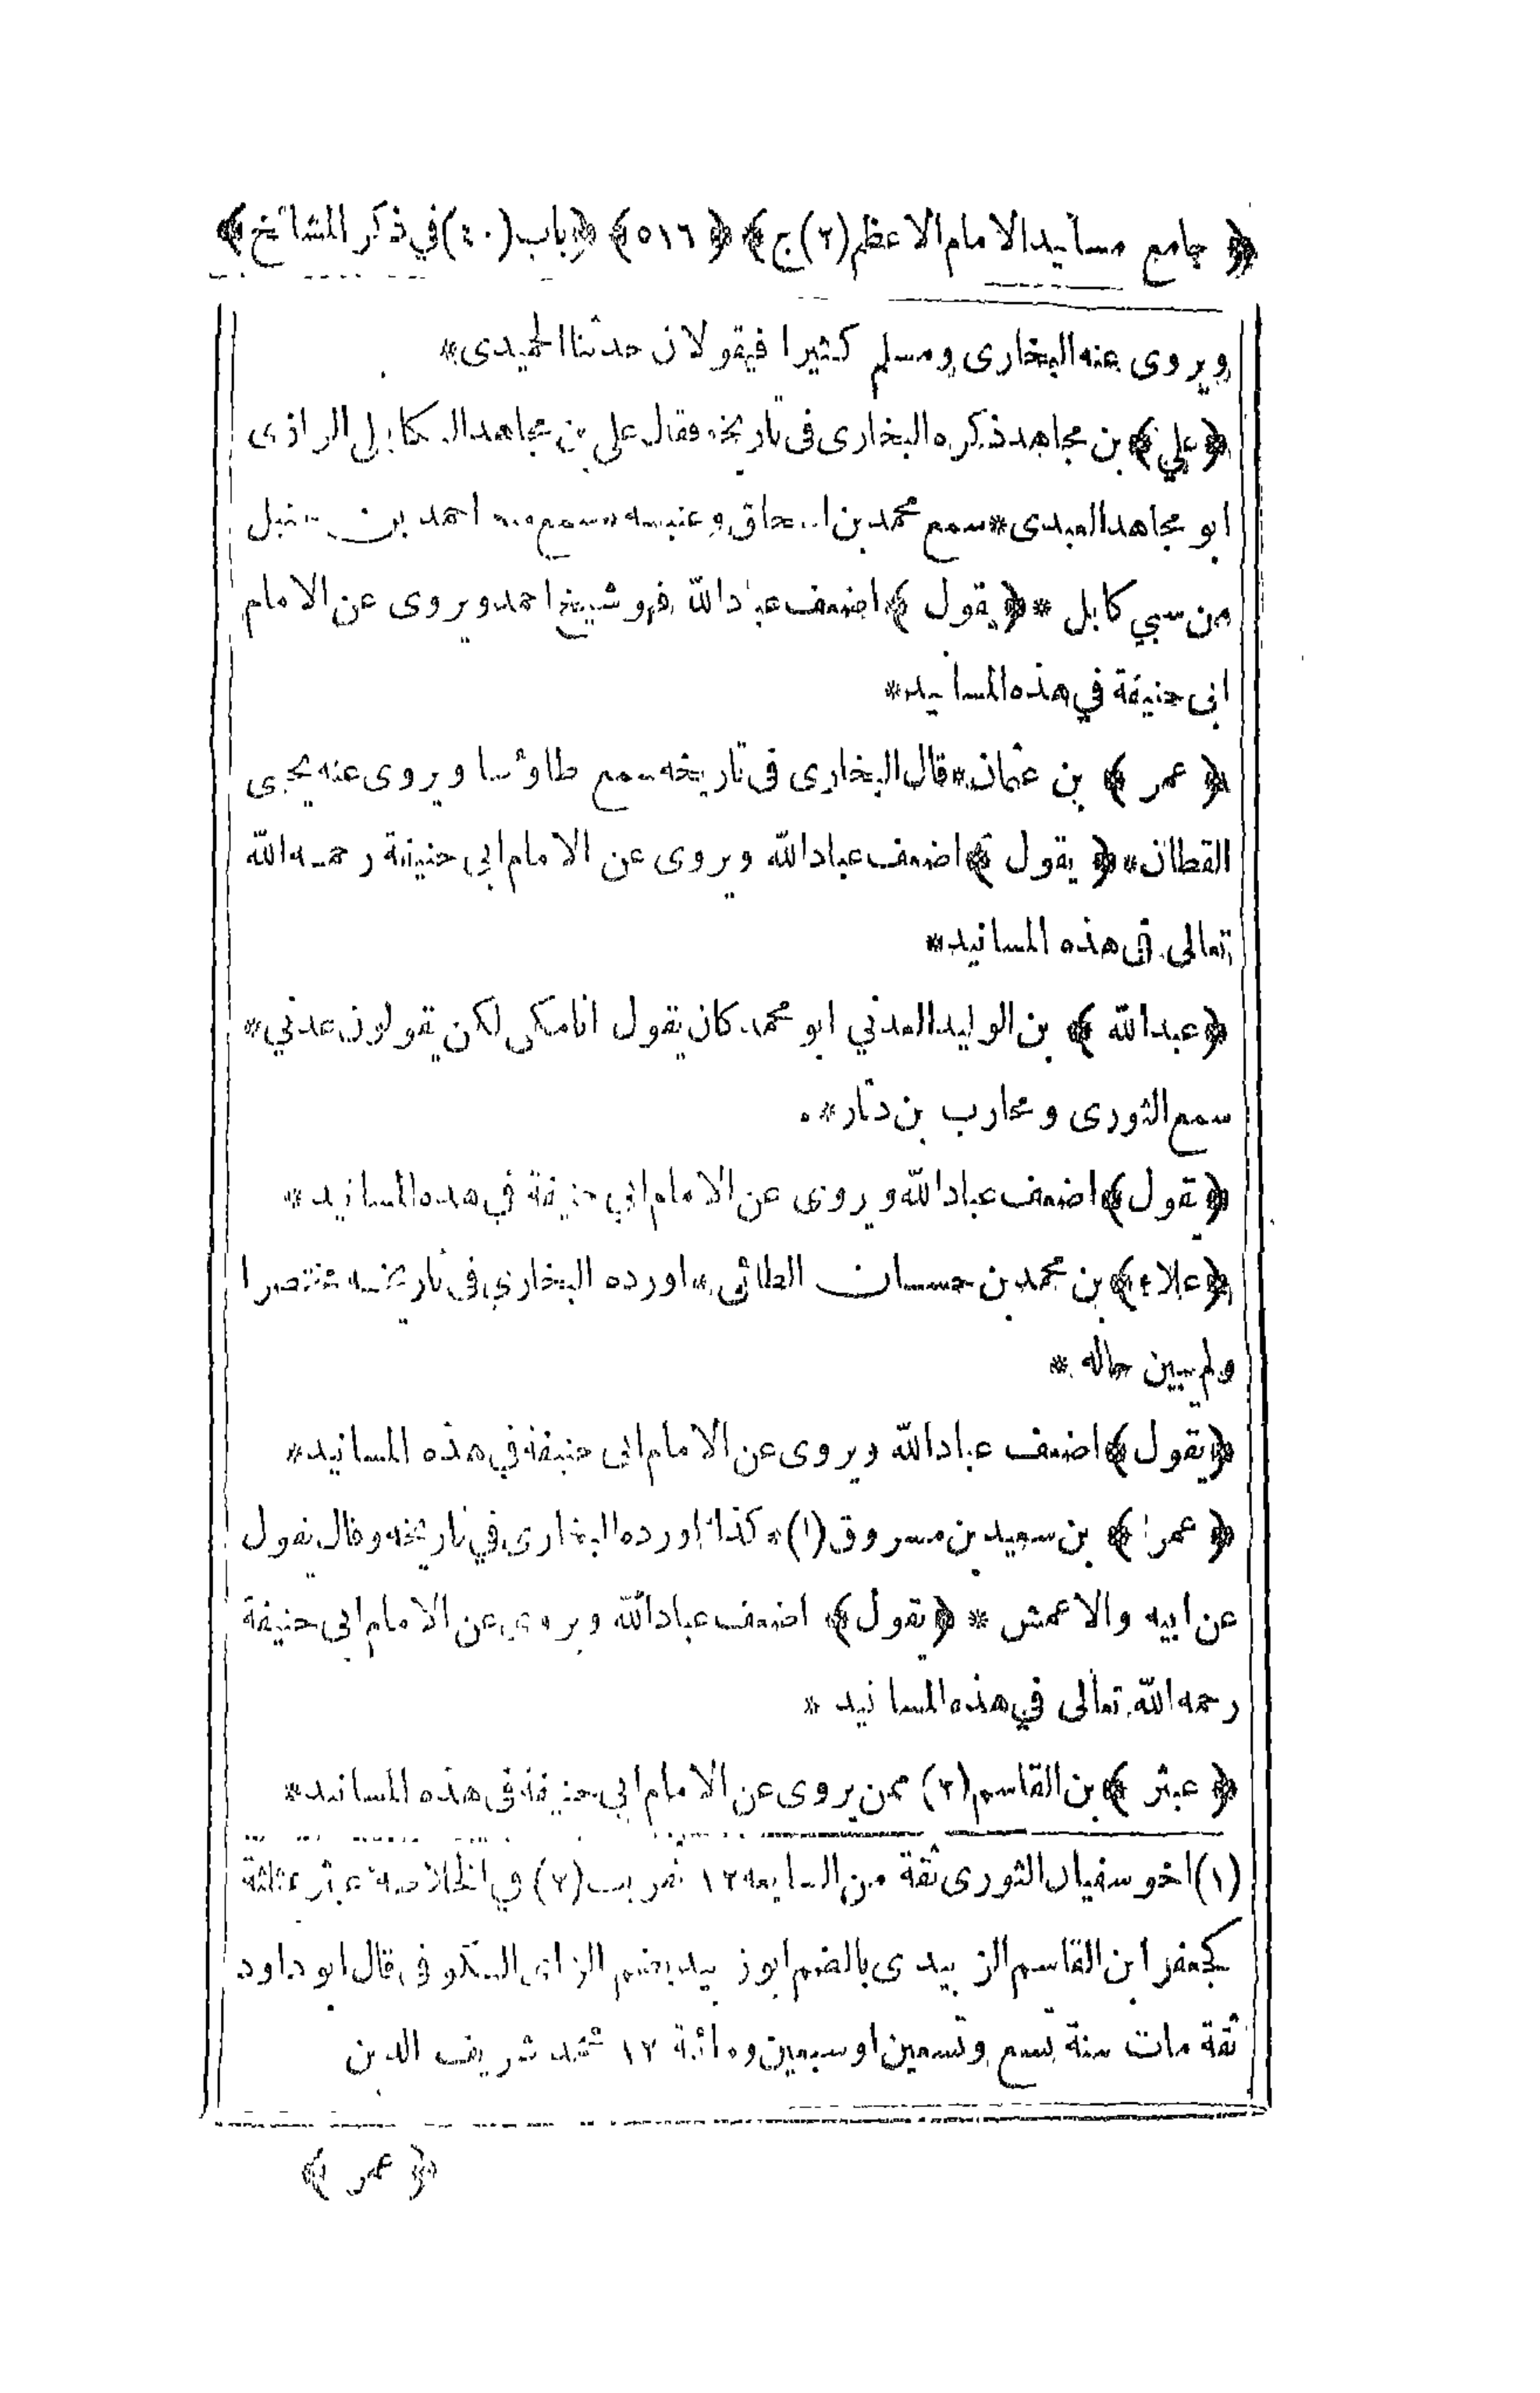 ﴿ جامع مسانيد الامام الاعظم (٢) ج ﴾ ﴿ ٥١٦ ﴾ ﴿ باب (٤٠) في ذكر المشائخ ﴾
ويروى عنه البخارى ومسلم كثيرا فيقولان حدثنا الحميدى *
﴿ علي ﴾ بن مجاهد ذكره البخارى فى تاريخه فقال على بن مجاهد الكابلى الرازى
ابو مجاهد العبدى * سمع محمد بن اسحاق وعنبسه * سمع منه احمد بن حنبل
من سبي كابل * ﴿ يقول ﴾ اضعف عباد الله فهو شيخ احمد ويروى عن الامام
ابى حنيفة في هذه المسانيد *
﴿ عمر ﴾ بن عثمان * قال البخارى فى تاريخه سمع طاوسا ويروى عنه يحيى
القطان * ﴿ يقول ﴾ اضعف عباد الله ويروى عن الامام ابى حنيفة رحمه الله
تعالى فى هذه المسانيد *
﴿ عبدالله ﴾ بن الوليد العدني ابو محمد كان يقول انا مكى لكن يقولون عدني *
سمع الثورى ومحارب بن دثار *
﴿ يقول ﴾ اضعف عباد الله ويروى عن الامام ابي حنيفة في هذه المسانيد *
﴿ علاء ﴾ بن محمد بن حسان الطائى * اورده البخارى فى تاريخه مختصرا
ولم يبين حاله *
﴿ يقول ﴾ اضعف عباد الله ويروى عن الامام ابى حنيفة في هذه المسانيد *
﴿ عمر ﴾ بن سعيد بن مسروق (١) * كذا اورده البخارى في تاريخه وقال يقول
عن ابيه والاعمش * ﴿ يقول ﴾ اضعف عباد الله ويروى عن الامام ابى حنيفة
رحمه الله تعالى في هذه المسانيد *
﴿ عبثر ﴾ بن القاسم (٢) ممن يروى عن الامام ابى حنيفة فى هذه المسانيد *
(١) اخو سفيان الثورى ثقة من السابعه ١٢ تقريب (٢) في الخلاصة عبثر بمثلثة
كجعفر ابن القاسم الزبيدى بالضم ابو زبيد بضم الزاى الكوفى قال ابو داود
ثقة مات سنة تسع وتسعين او سبعين ومائة ١٢ محمد شريف الدين
﴿ عمر ﴾